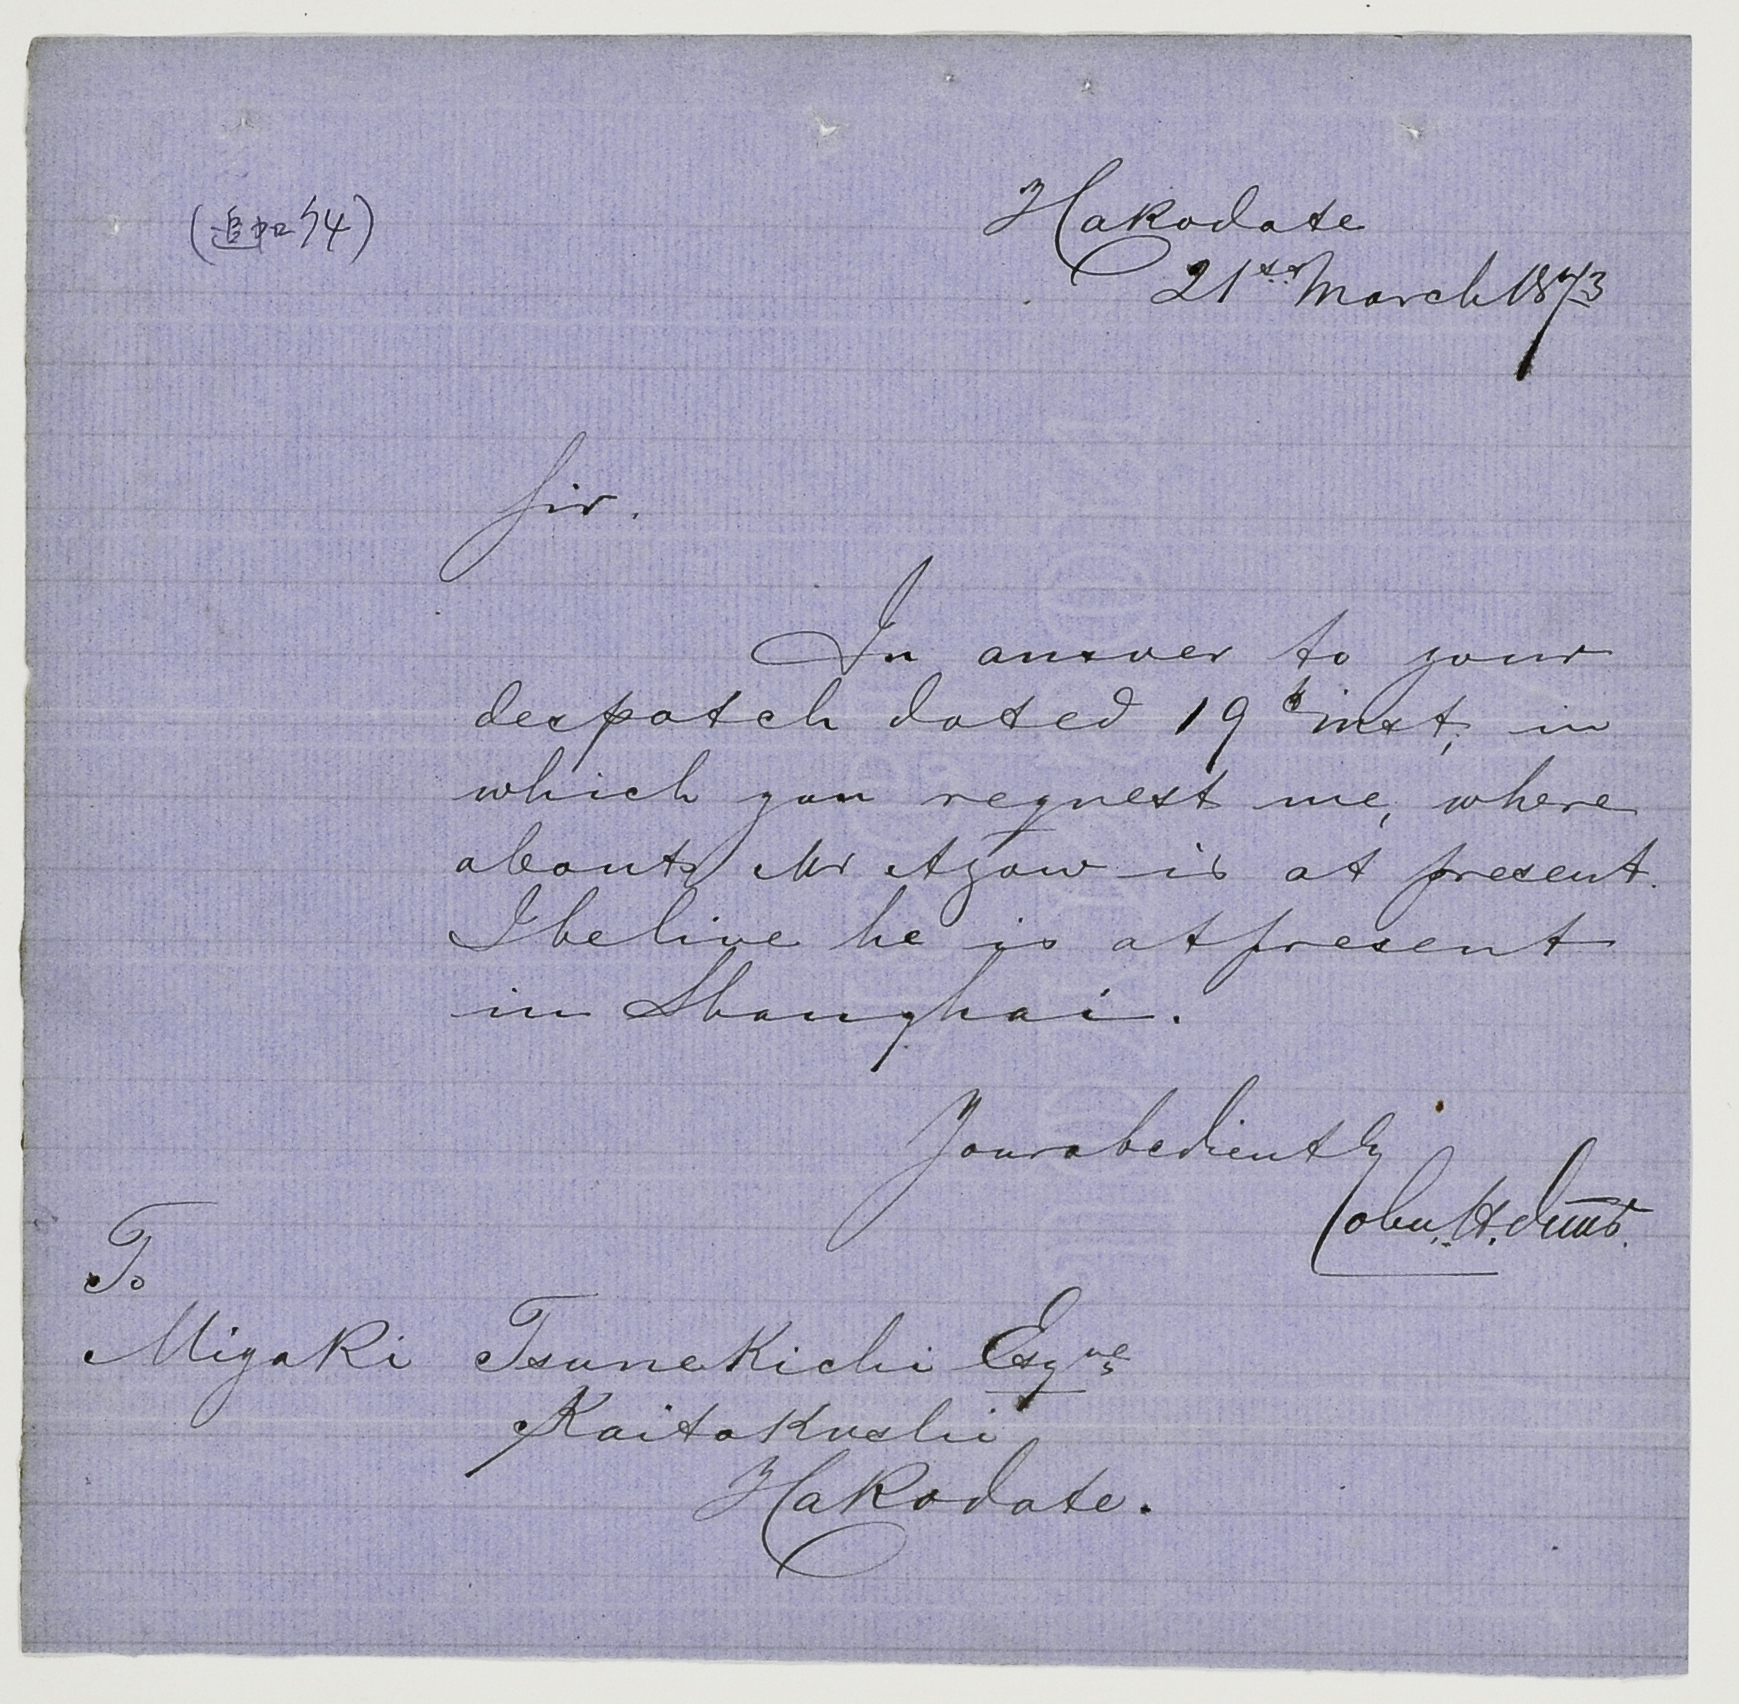 (追加 74)
Hakodate
21st March 1873
Sir.
In answer to your
despatch dated 19th inst, in
which you request me, where
abouts Mr Ahow is at present.
I belive he is at present
in Shanghai.
Your obediently
John. H. Duus.
To
Miyaki Tsunekichi Esqre
Kaitakushi
Hakodate.